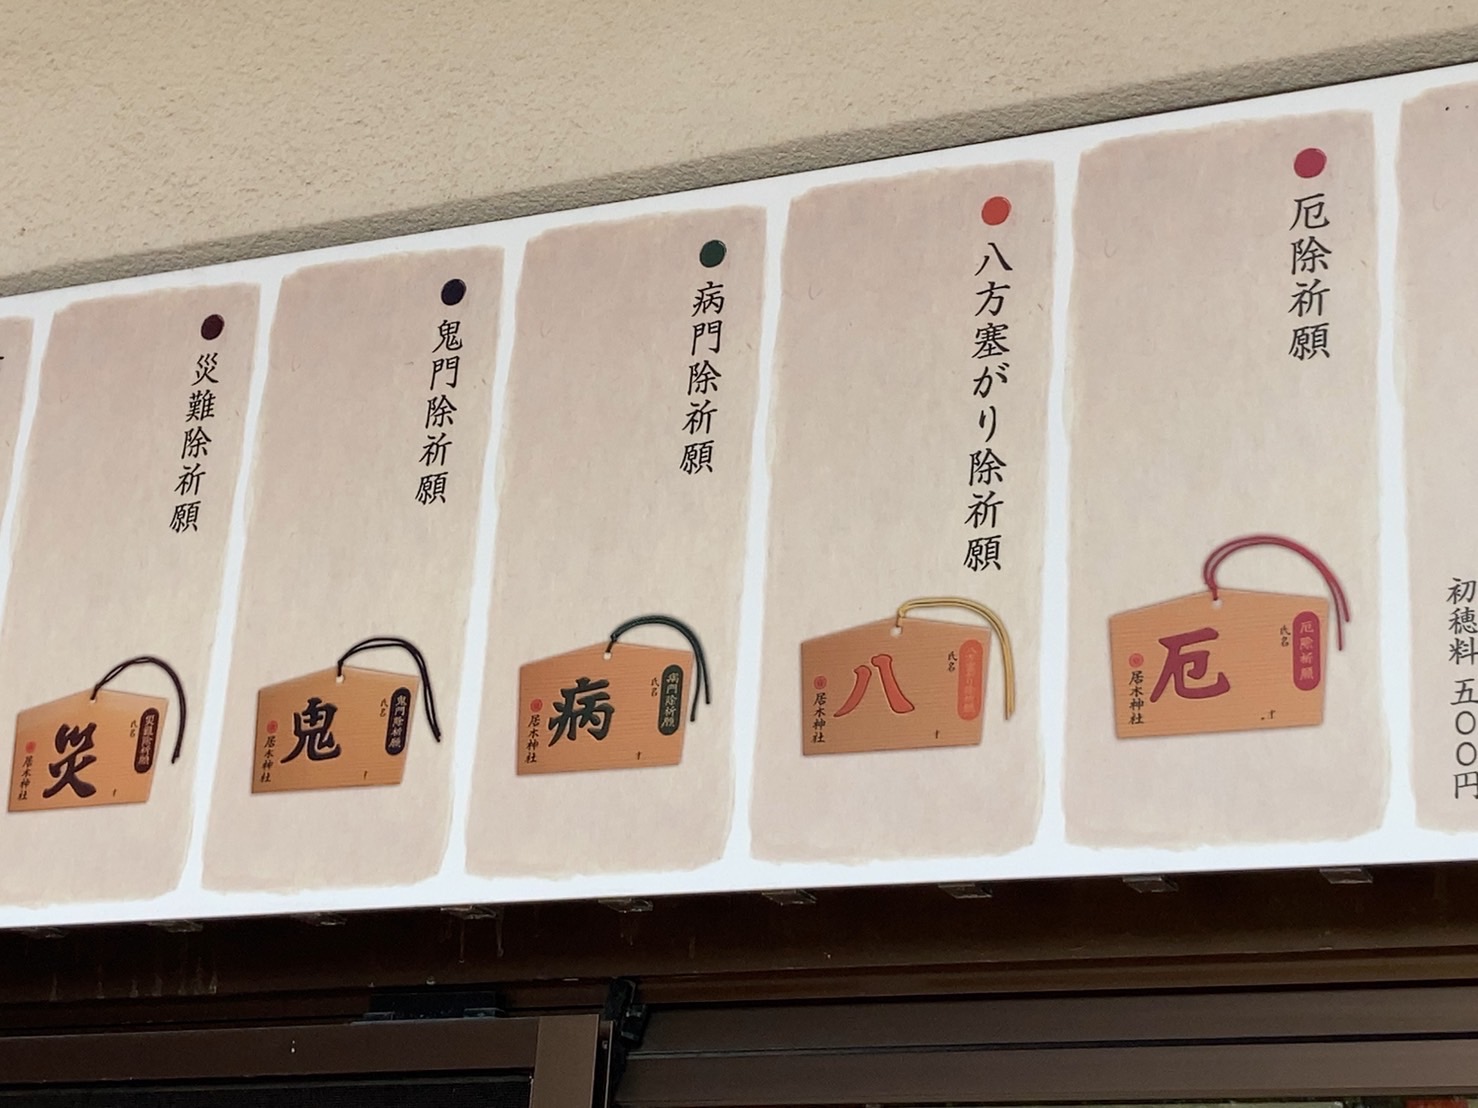 初穂料 五〇〇円
厄除祈願
厄除祈願
氏名
厄
居木神社
八方塞がり除祈願
八方塞がり除祈願
氏名
八
居木神社
病門除祈願
病門除祈願
氏名
病
居木神社
鬼門除祈願
鬼門除祈願
氏名
鬼
居木神社
災難除祈願
災難除祈願
氏名
災
居木神社